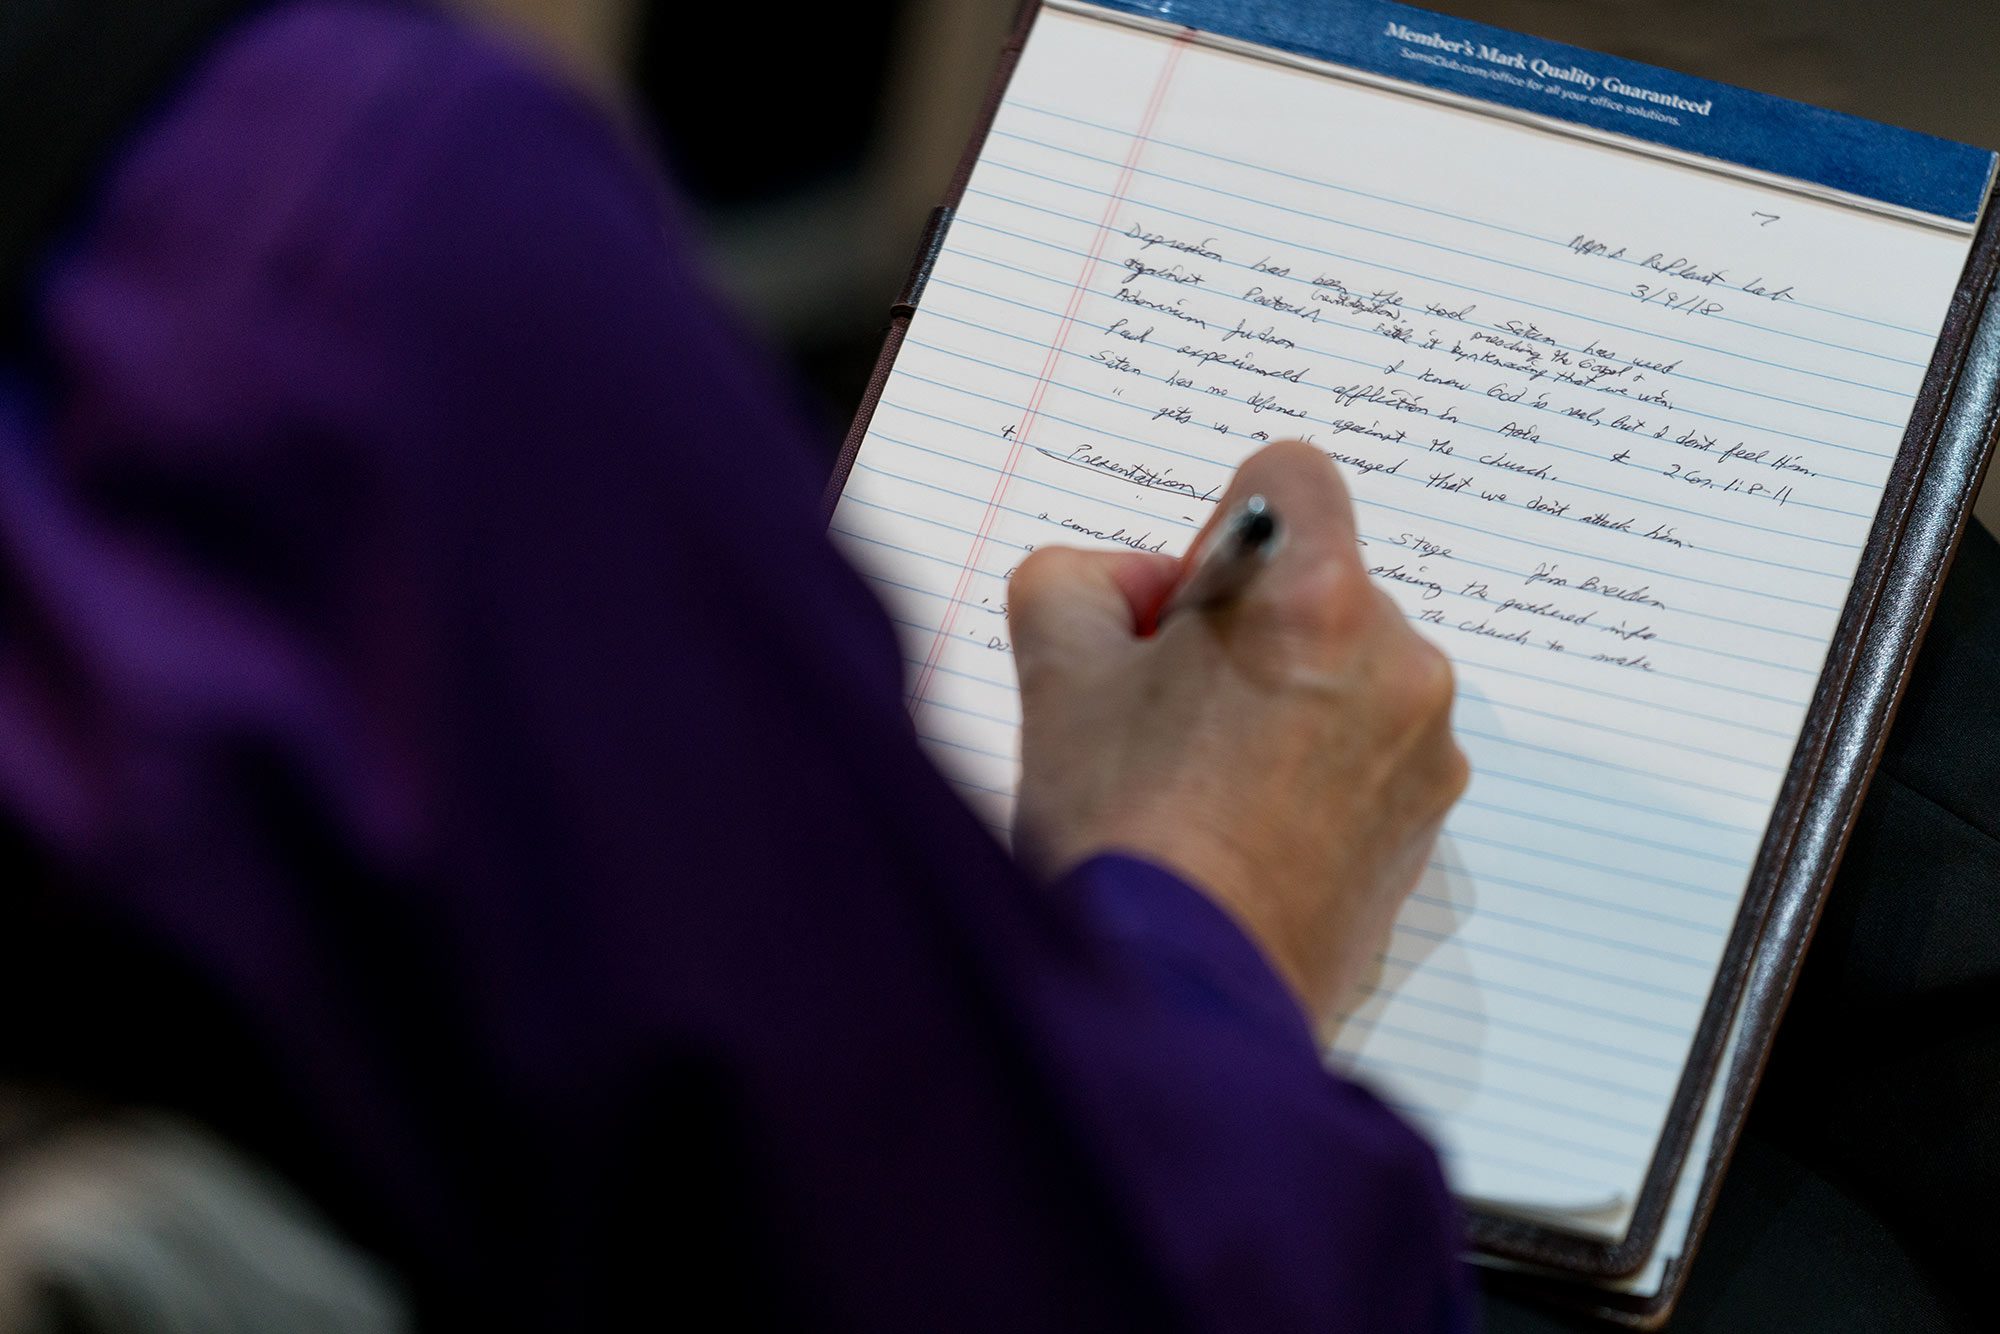 Member's Mark Quality Guaranteed
SamsClub.com/office for all your office solutions.
7
Replant Lab
3/9/18
Depression has been the tool Satan has used
against Pastors preaching the Gospel +
Battle it by knowing that we win.
Adonirum Judson I know God is real, but I don't feel Him.
Paul experienced affliction in Asia 2 Cor. 1:8-11
Satan has no defense against the church.
" gets us so that we don't attack him.
4. Presentation
" - Stage Jim Breeden
concluded sharing the gathered info
the church to make
Do